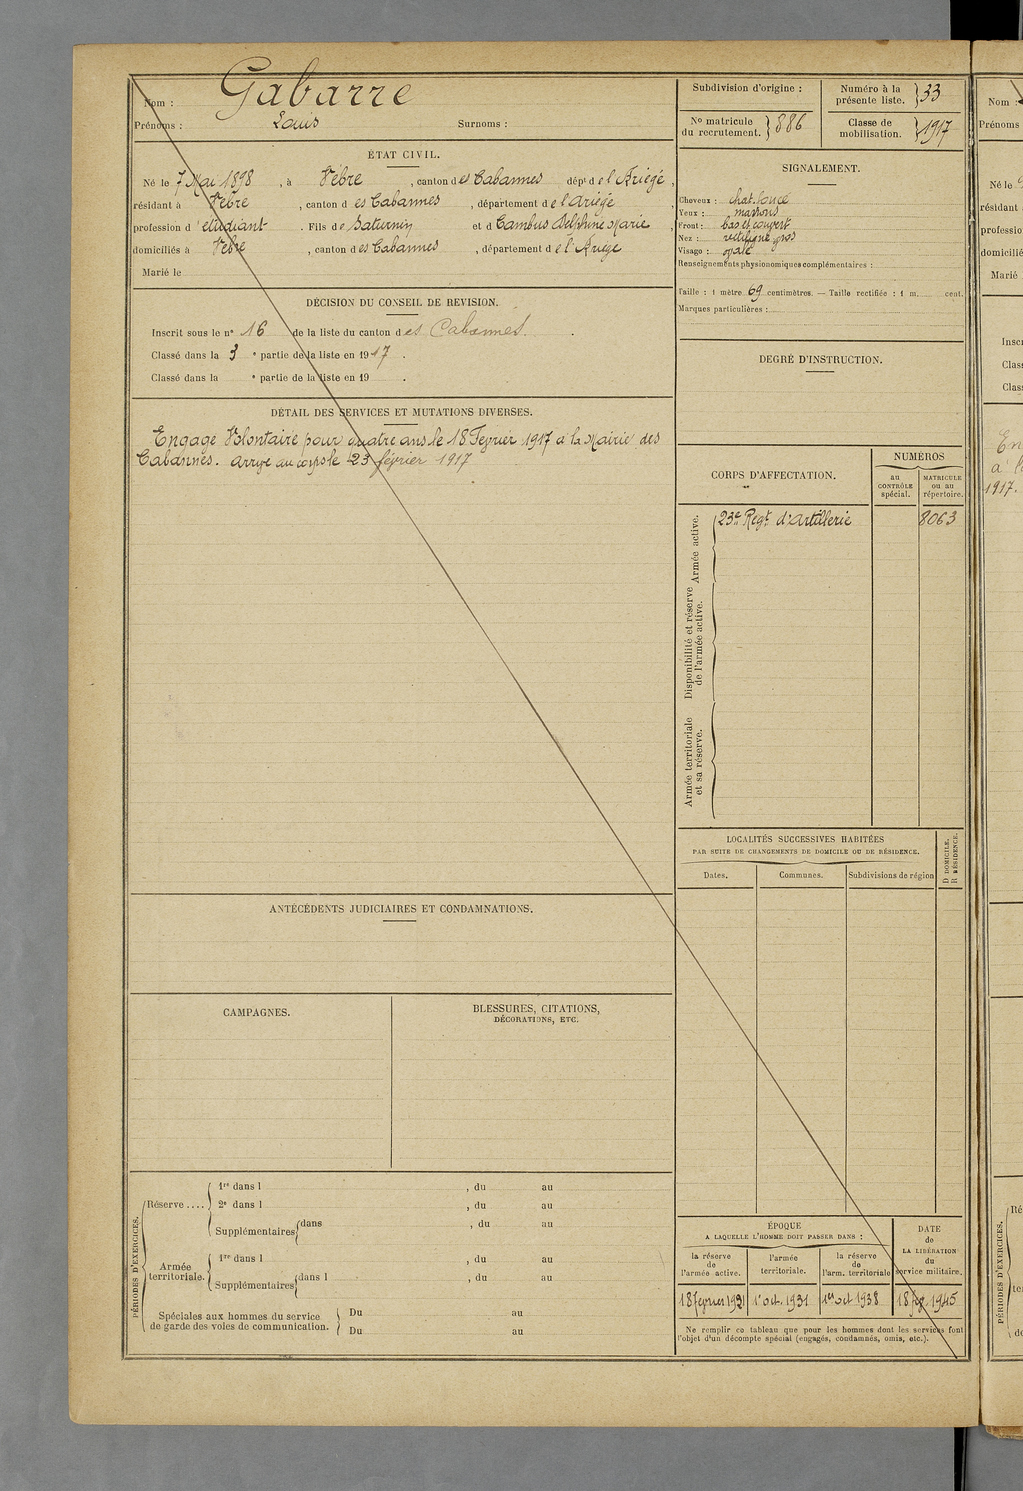 Nom : Gabarre
Prénoms : Louis Surnoms :
ÉTAT CIVIL.
Né le 7 Mai 1898, à Vèbre, canton des Cabannes dépt de l'Ariège,
résidant à Vèbre, canton des Cabannes, département de l'Ariège
profession d'étudiant. Fils de Saturnin et d Cambus Delphine Marie,
domiciliés à Vèbre, canton des Cabannes, département de l'Ariège
Marié le
DÉCISION DU CONSEIL DE REVISION.
Inscrit sous le n° 16 de la liste du canton des Cabannes.
Classé dans la 3 e partie de la liste en 1917.
Classé dans la e partie de la liste en 19 .
DÉTAIL DES SERVICES ET MUTATIONS DIVERSES.
Engagé Volontaire pour quatre ans le 18 Février 1917 à la Mairie des
Cabannes. Arrivé au corps le 23 février 1917
ANTÉCÉDENTS JUDICIAIRES ET CONDAMNATIONS.
CAMPAGNES.
BLESSURES, CITATIONS,
DÉCORATIONS, ETC.
PÉRIODES D'EXERCICES.
Réserve ....
1re dans l , du au
2e dans l , du au
Supplémentaires dans , du au
Armée
territoriale.
1re dans l , du au
Supplémentaires dans l , du au
Spéciales aux hommes du service
de garde des voies de communication.
Du au
Du au
Subdivision d'origine :
Numéro à la
présente liste. 33
N° matricule
du recrutement. 886
Classe de
mobilisation. 1917
SIGNALEMENT.
Cheveux : chat. foncé
Yeux : marrons
Front : bas et couvert
Nez : rectiligne gros
Visage : ovale
Renseignements physionomiques complémentaires :
Taille : 1 mètre 69 centimètres. — Taille rectifiée : 1 m. cent.
Marques particulières :
DEGRÉ D'INSTRUCTION.
CORPS D'AFFECTATION.
NUMÉROS
au
CONTRÔLE
spécial.
MATRICULE
ou au
répertoire.
Armée active.
23e Regt. d'Artillerie 8063
Disponibilité et réserve
de l'armée active.
Armée territoriale
et sa réserve.
LOCALITÉS SUCCESSIVES HABITÉES
PAR SUITE DE CHANGEMENTS DE DOMICILE OU DE RÉSIDENCE.
D DOMICILE.
R RÉSIDENCE.
Dates. Communes. Subdivisions de région
ÉPOQUE
A LAQUELLE L'HOMME DOIT PASSER DANS :
la réserve
de
l'armée active.
l'armée
territoriale.
la réserve
de
l'arm. territoriale
DATE
de
LA LIBÉRATION
du
service militaire.
18 février 1921 1er oct. 1931 1er oct 1938 18 fév. 1945
Ne remplir ce tableau que pour les hommes dont les services font
l'objet d'un décompte spécial (engagés, condamnés, omis, etc.).
Nom :
Prénoms
Né le
résidant
profession
domiciliés
Marié
Inscr
Class
Class
En
à l
1917.
Ré
PÉRIODES D'EXERCICES.